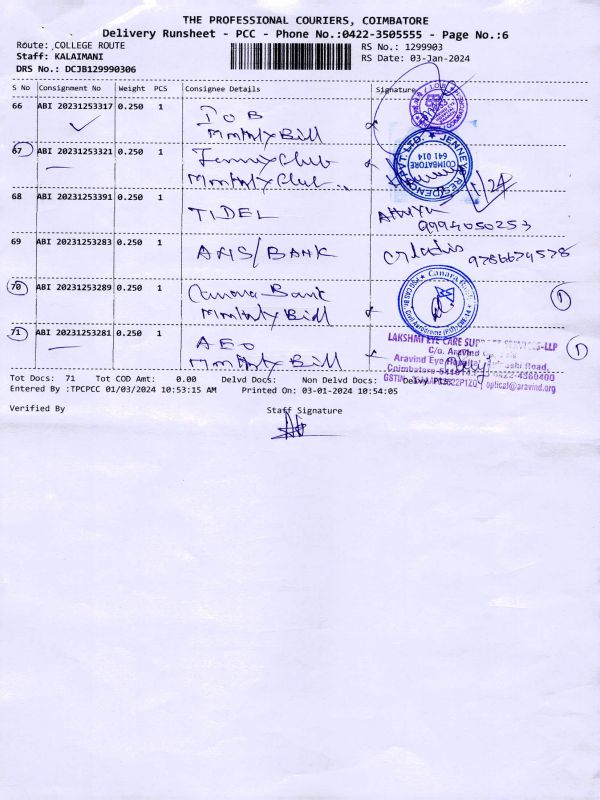 THE PROFESSIONAL COURIERS, COIMBATORE
Delivery Runsheet - PCC - Phone No.:0422-3505555 - Page No.:6
Route: COLLEGE ROUTE
RS No.: 1299903
Staff: KALAIMANI
RS Date: 03-Jan-2024
DRS No.: DCJB129990306
S No Consignment No Weight PCS Consignee Details Signature
66 ABI 20231253317 0.250 1 IOB
Monthly Bill
67 ABI 20231253321 0.250 1 Club
Monthly
JENNEY RESIDENCY PVT LTD. COIMBATORE 641 014
68 ABI 20231253391 0.250 1 TIDEL
9994050253
69 ABI 20231253283 0.250 1 AMS/BANK
9786674578
70 ABI 20231253289 0.250 1 Canara Bank
Monthly Bill
Canara Bank
71 ABI 20231253281 0.250 1 AEO
Monthly Bill
LAKSHMI EYE CARE SERVICES-LLP
C/o. Aravind
Aravind Eye Road,
Coimbatore
GSTIN: optical@aravind.org
Tot Docs: 71 Tot COD Amt: 0.00 Delvd Docs: Non Delvd Docs: Delvy PCS:
Entered By :TPCPCC 01/03/2024 10:53:15 AM Printed On: 03-01-2024 10:54:05
Verified By
Staff Signature